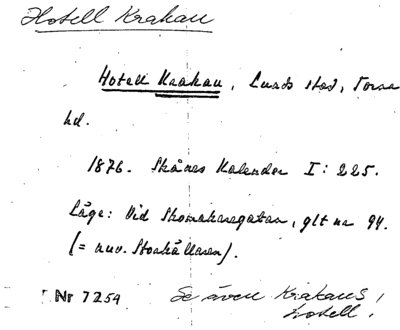 Hotell Krakau
Hotell Krakau, Lunds stad, Torna
hd.
1876. Skånes Kalender I: 225.
Läge: Vid Skomakaregatan, glt nr 94.
(= nuv. Storkällaren).
Nr 7254 Se även Krakaus
hotell!